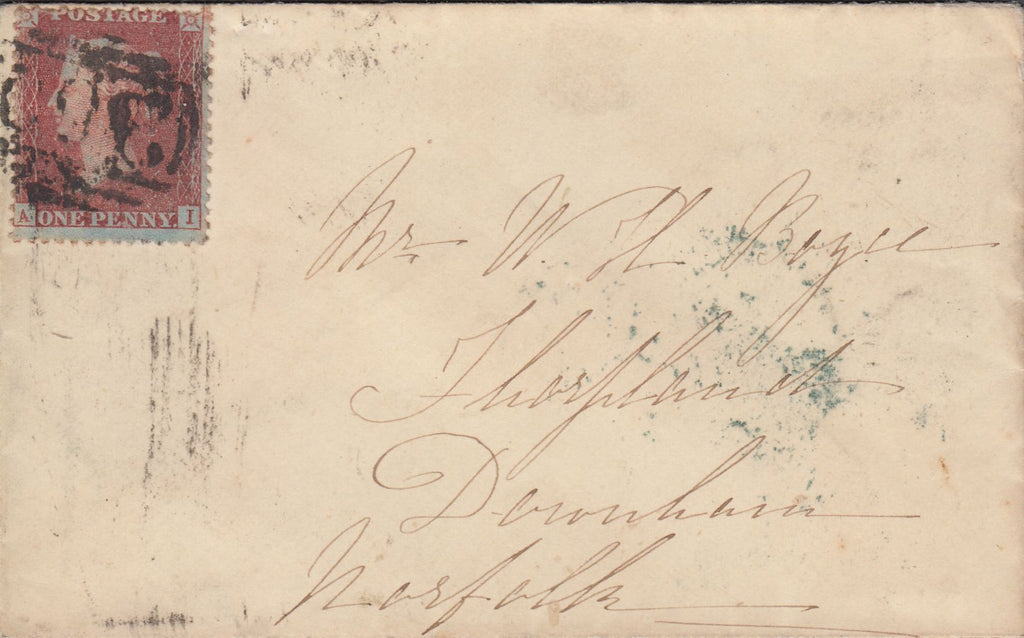 POSTAGE
A ONE PENNY. I
Mr W. H Boyce
Thorpland
Downham
Norfolk